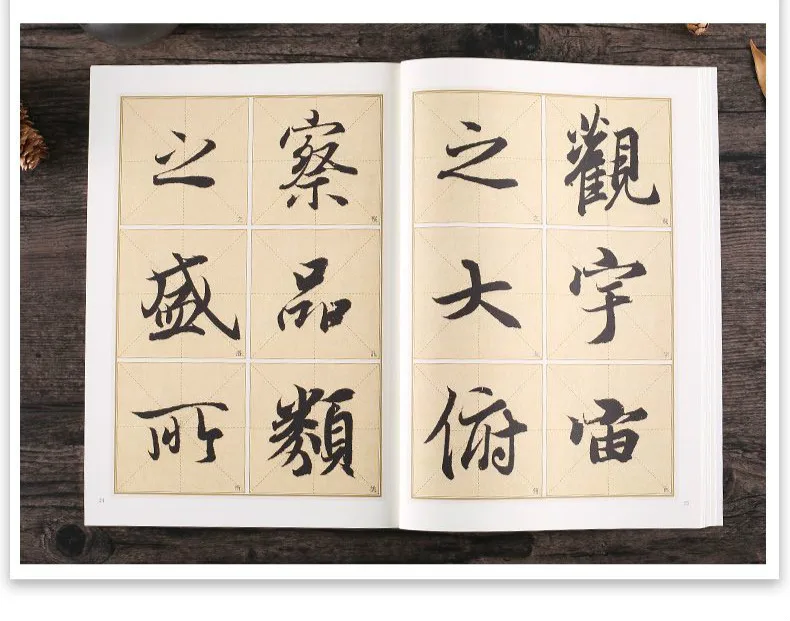 觀宇宙
之大俯
察品類
之盛所